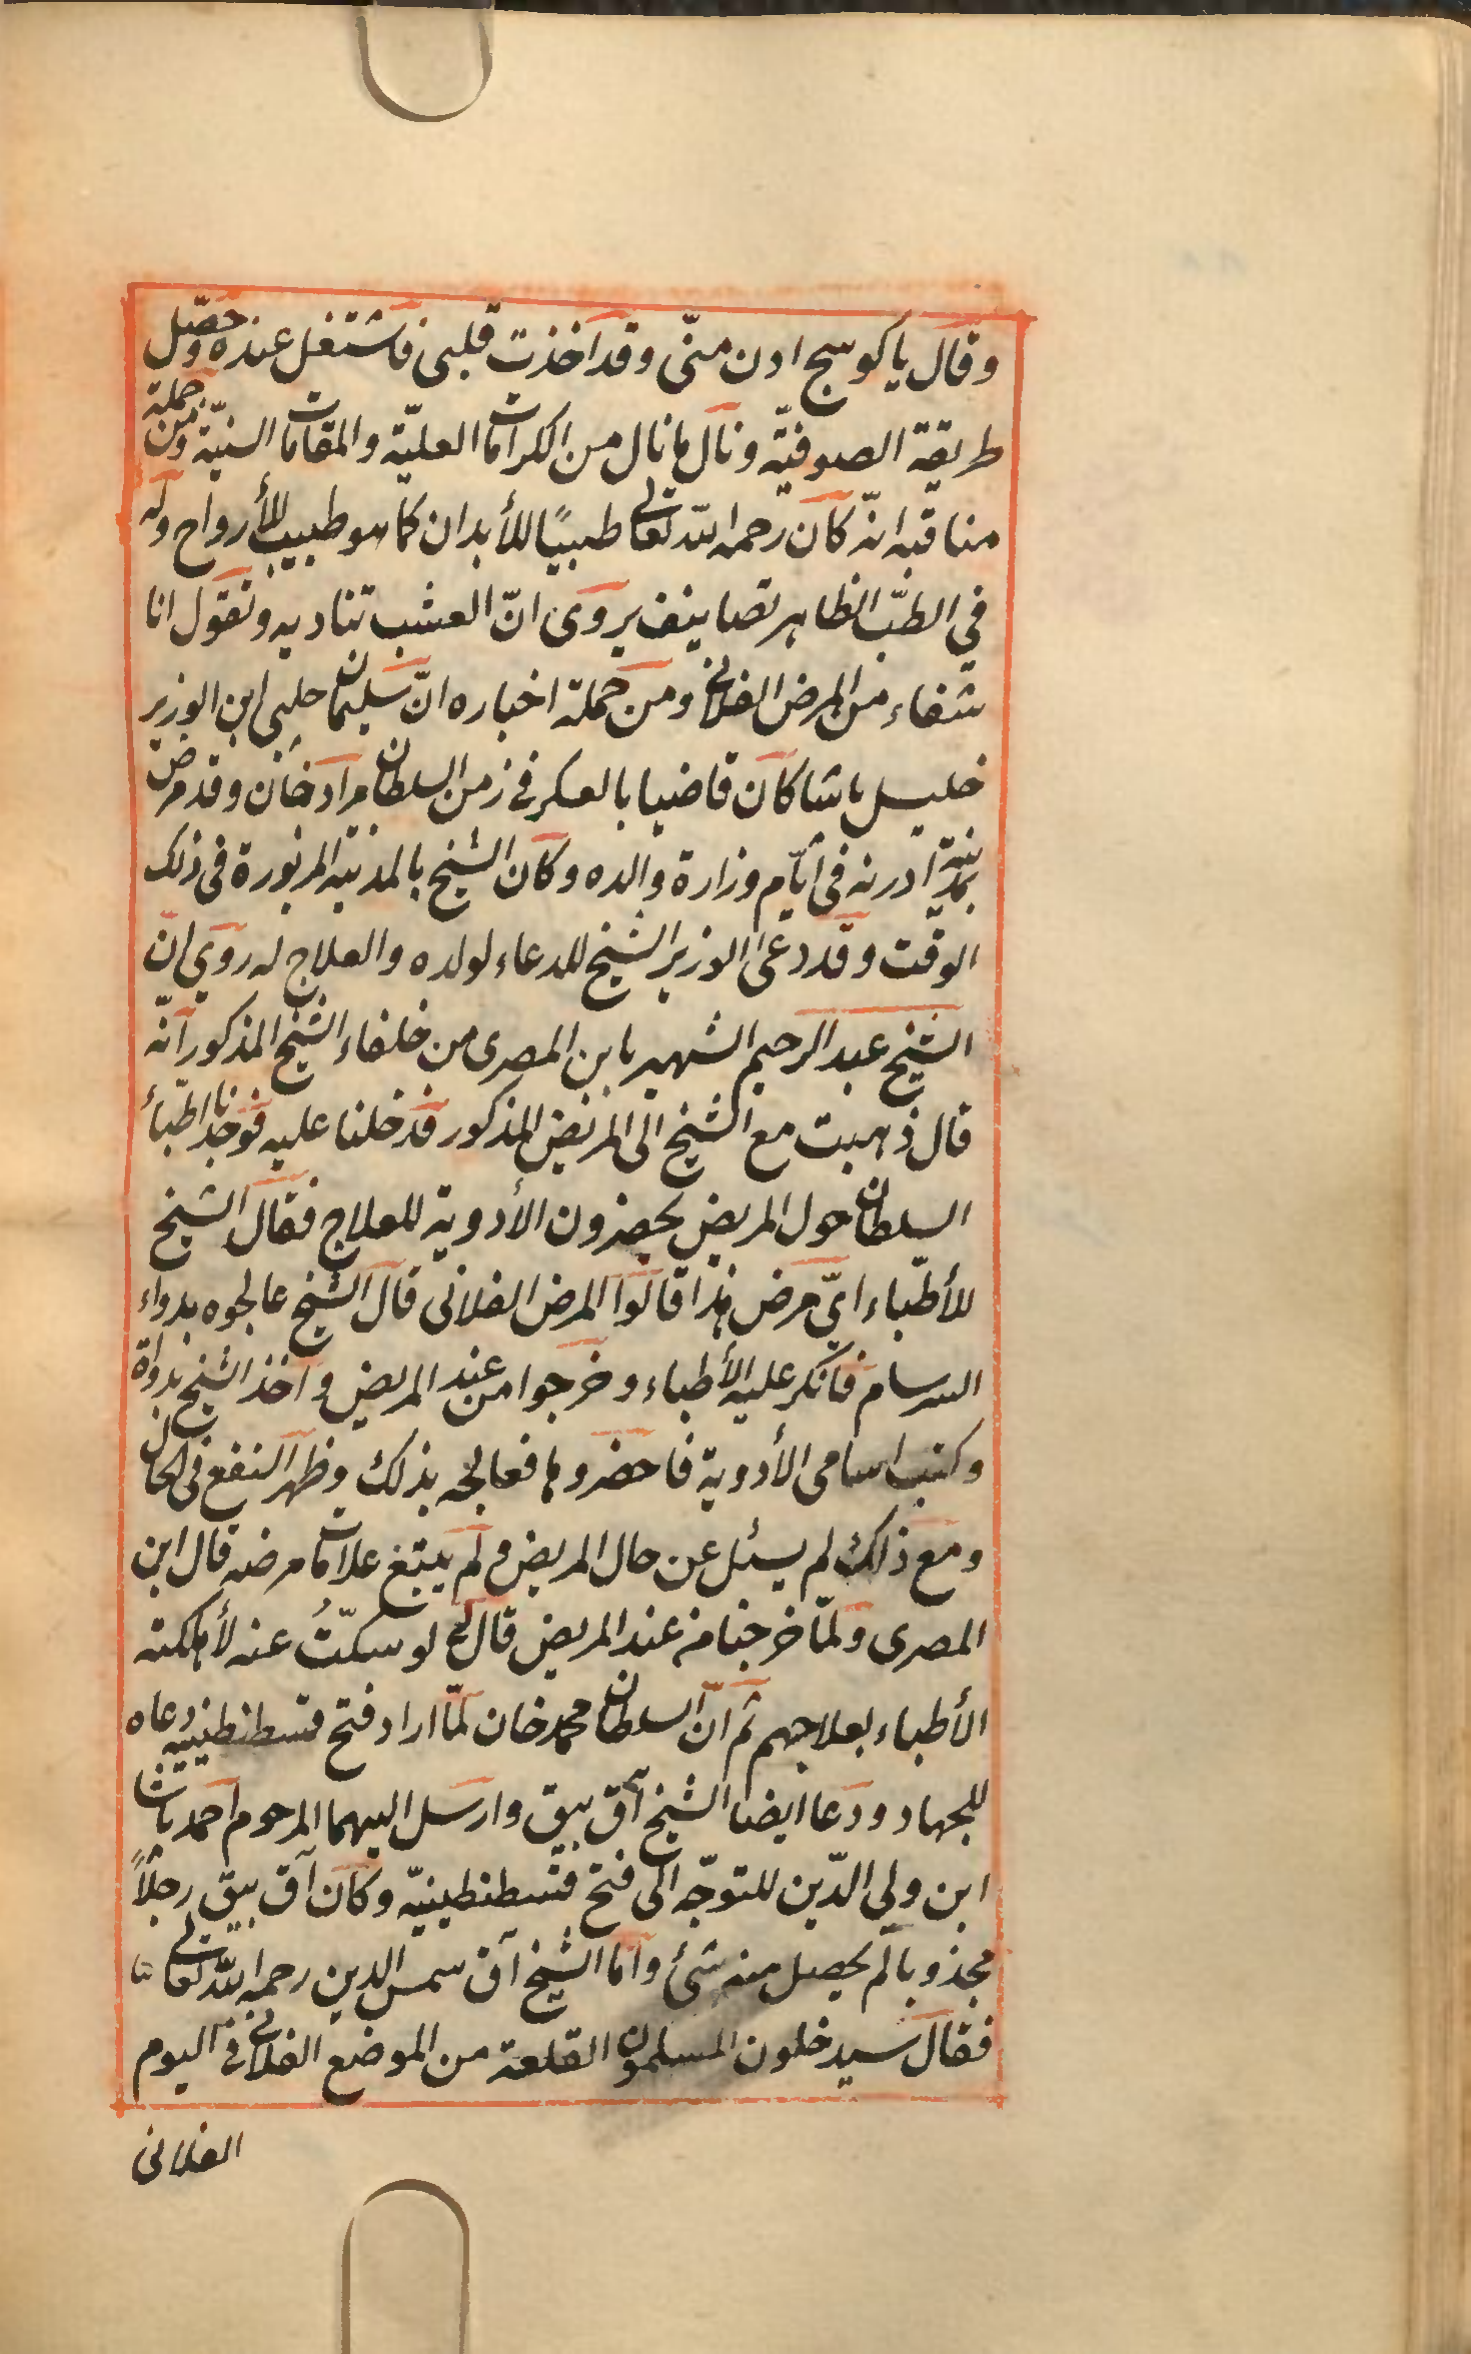 وقال يا كوسج ادن منّى وقد اخذت قلبى فاشتغل عنده وحصّل
طريقة الصوفيّة ونال ما نال من الكرامات العليّة والمقامات السنيّة ومن جملة
مناقبه انّه كان رحمه الله تعالى طبيبًا للأبدان كما هو طبيب للأرواح وله
في الطبّ الظاهر تصانيف يروى انّ العشب تناديه وتقول انا
شفاء من المرض الفلانى ومن جملة اخباره انّ سليمان چلبى ابن الوزير
خليل باشا كان قاضيا بالعسكر فى زمن السلطان مراد خان وقد مرض
بمدينة ادرنه فى أيّام وزارة والده وكان الشيخ بالمدينة المزبورة فى ذلك
الوقت وقد دعى الوزير الشيخ للدعاء لولده والعلاج له روى ان
الشيخ عبد الرحيم الشهير بابن المصرى من خلفاء الشيخ المذكور انّه
قال ذهبت مع الشيخ الى المريض المذكور فدخلنا عليه فوجدنا اطبّاء
السلطان حول المريض يحضرون الأدوية للعلاج فقال الشيخ
للأطبّاء ايّ مرض هذا قالوا المرض الفلانى قال الشيخ عالجوه بدواء
السرسام فانكر عليه الأطباء وخرجوا من عند المريض واخذ الشيخ بدواة
وكتب اسامى الأدوية فاحضروها فعالجه بذلك وظهر النفع فى الحال
ومع ذلك لم يسئل عن حال المريض ولم يبتغ علامات مرضه قال ابن
المصرى ولمّا خرجنا من عند المريض قال لى لو سكتُّ عنه لأهلكته
الأطباء بعلاجهم ثم انّ السلطان محمد خان لمّا اراد فتح قسطنطينيه دعاه
للجهاد ودعا ايضا الشيخ آق بيق وارسل اليهما المرحوم احمد باشا
ابن ولى الدّين للتوجّه الى فتح قسطنطينيّه وكان آق بيق رجلاً
مجذوبا لم يحصل منه شئ وأما الشيخ آق شمس الدين رحمه الله تعالى
فقال سيدخلون المسلمون القلعة من الموضع الفلانى فى اليوم
الفلانى